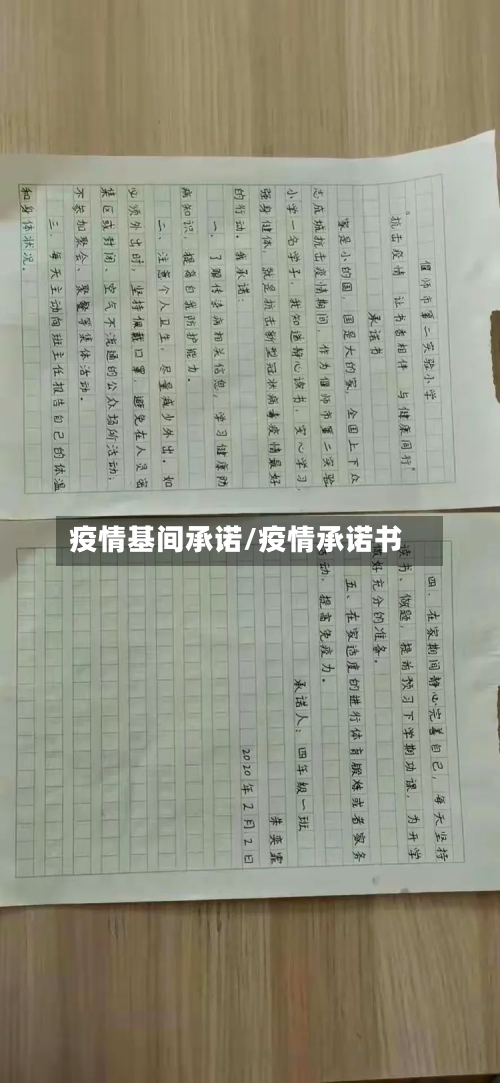 偃师市第二实验小学
“抗击疫情 让书香相伴 与健康同行”
承诺书
家是小的国，国是大的家，全国上下众
志成城抗击疫情期间，作为偃师市第二实验
小学一名学子，我知道静心读书、安心学习、
强身健体，就是抗击新型冠状病毒疫情最好
的行动。我承诺：
一、了解传染病相关信息，学习健康防
病知识，提高自我防护能力。
二、注意个人卫生，尽量减少外出。如
必须外出时，坚持佩戴口罩，避免在人员密
集区或封闭、空气不流通的公众场所活动；
不参加聚会、聚餐等集体活动。
三、每天主动向班主任报告自己的体温
和身体状况。
疫情基间承诺/疫情承诺书
四、在家期间静心完善自己，每天坚持
读书、做题，提前预习下学期功课，为升学
做好充分的准备。
五、在家适度的进行体育锻炼或者家务
动，提高免疫力。
承诺人：四年级一班
朱奕霏
2020年2月2日